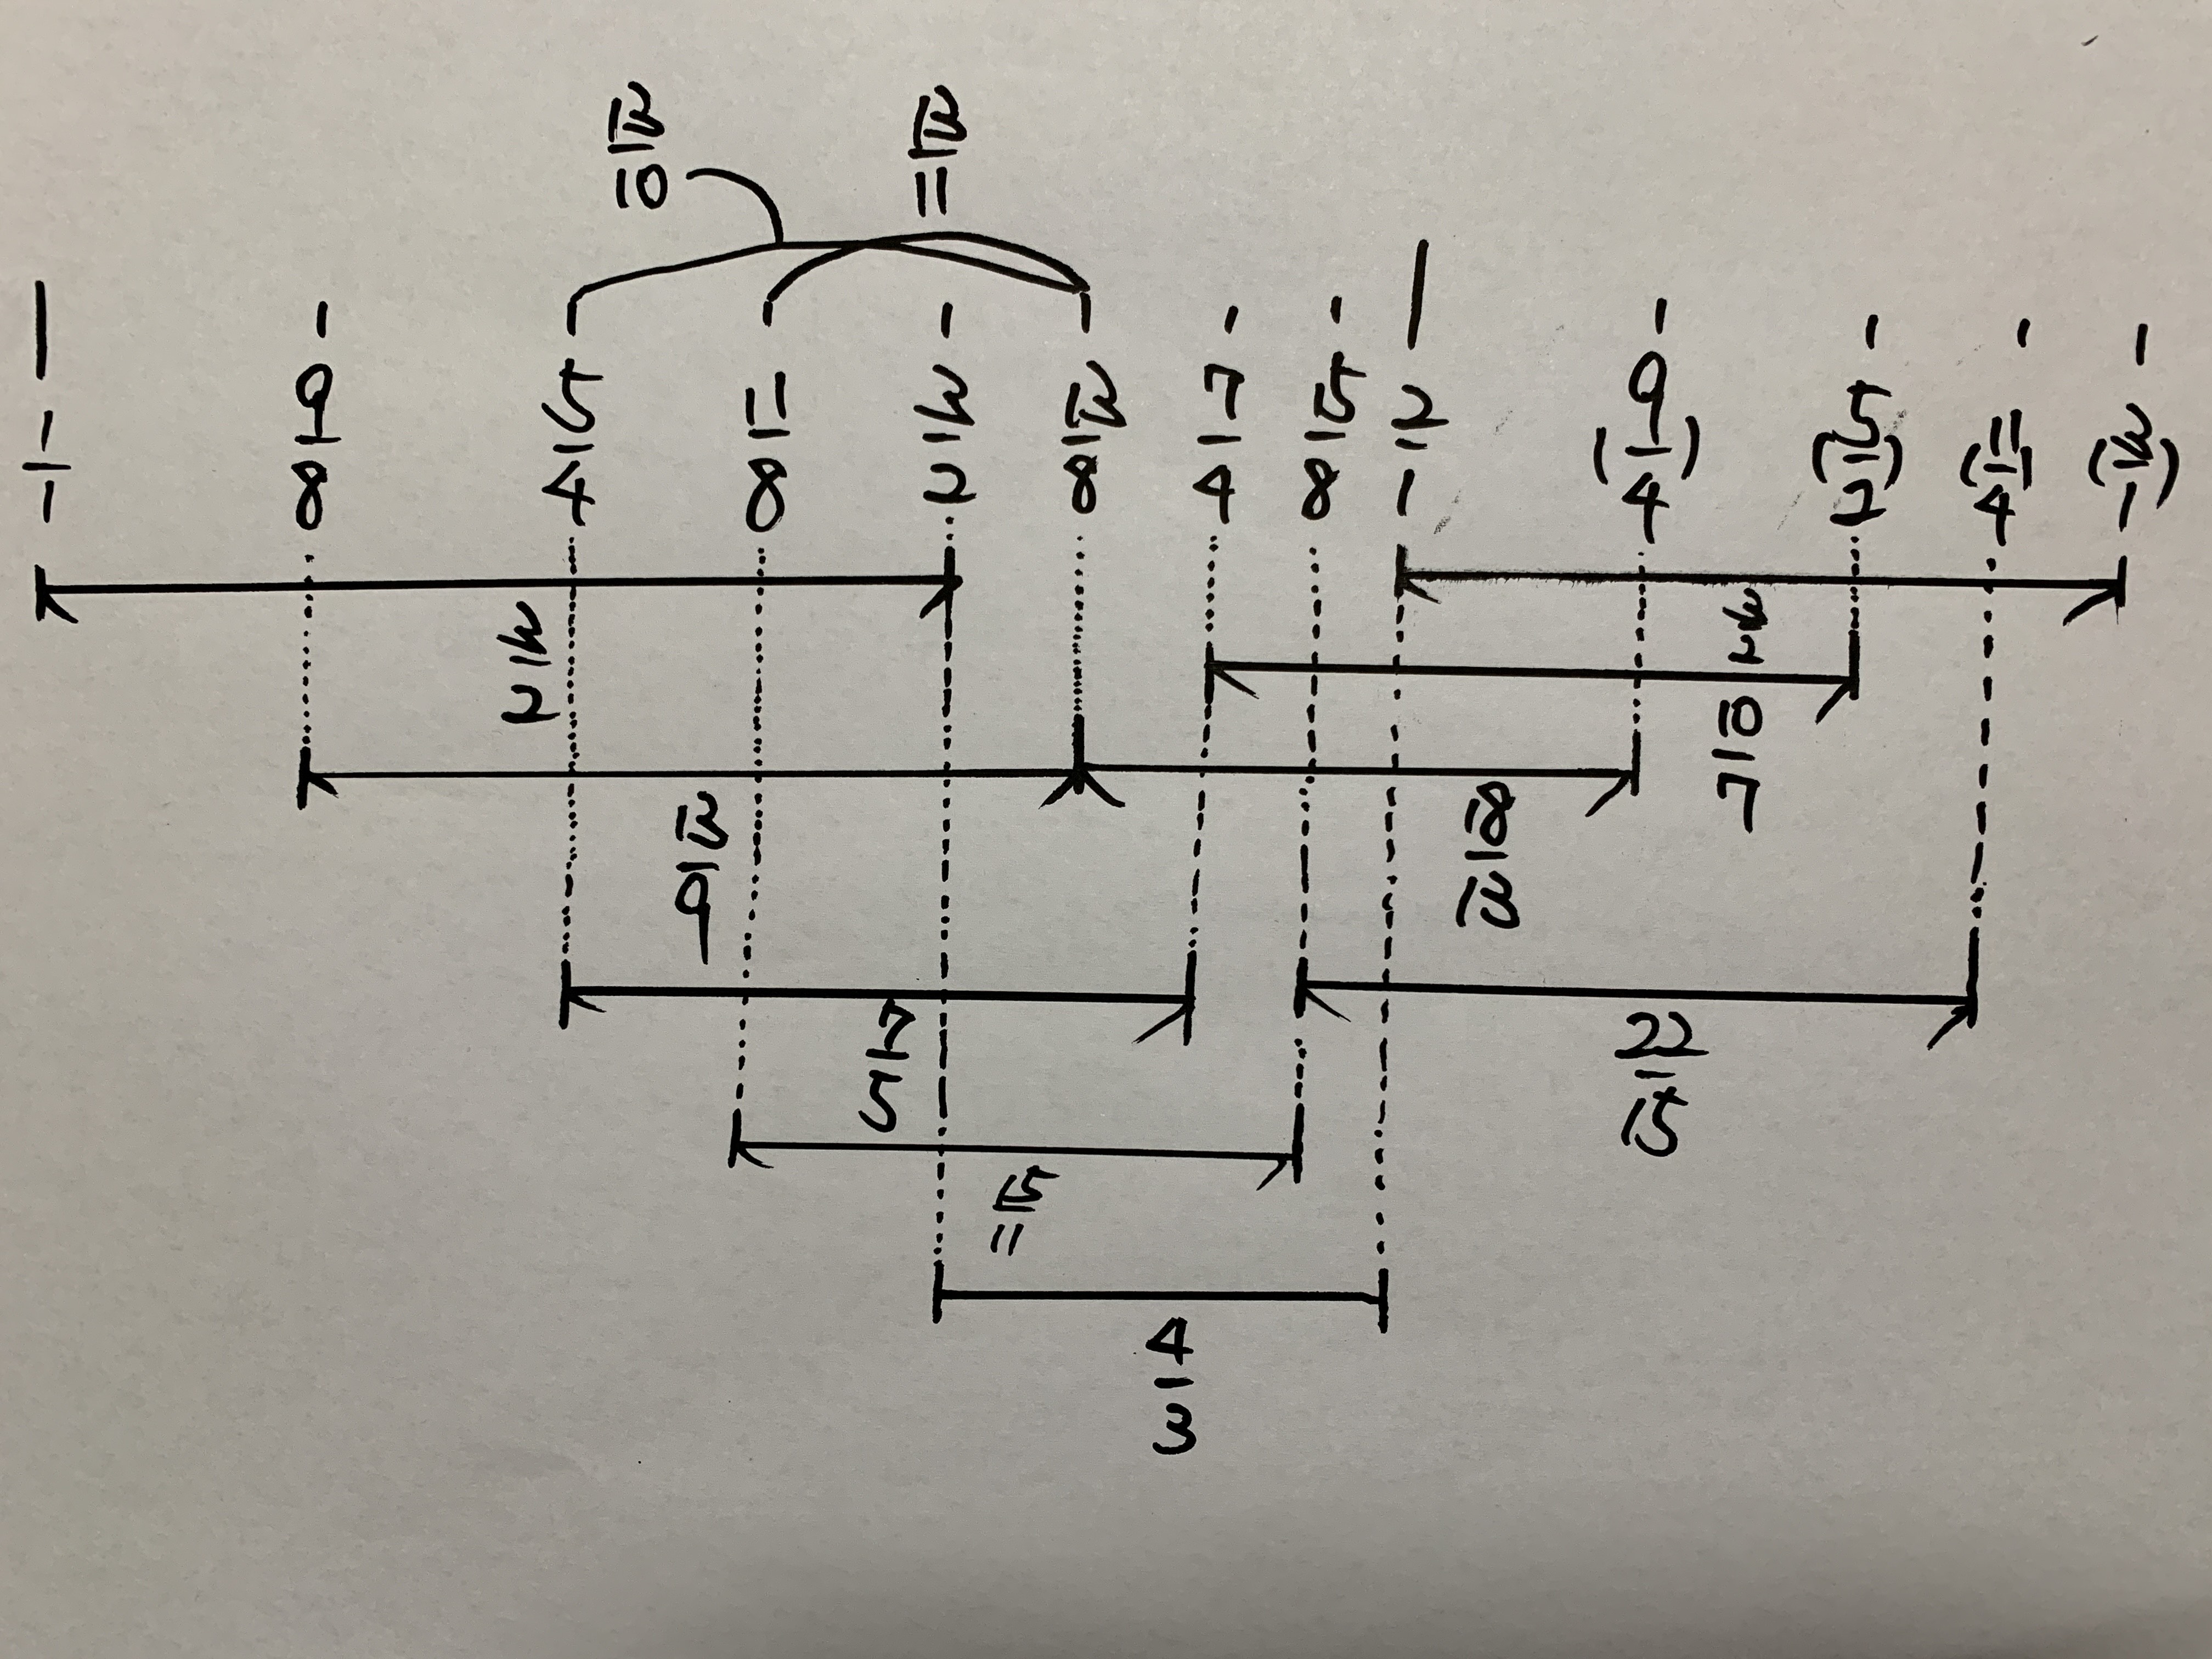 13/10 13/11
1/1 9/8 5/4 11/8 3/2 13/8 7/4 15/8 2/1 (9/4) (5/2) (11/4) (3/1)
3/2 3/2
10/7
13/9 18/13
7/5 22/15
15/11
4/3